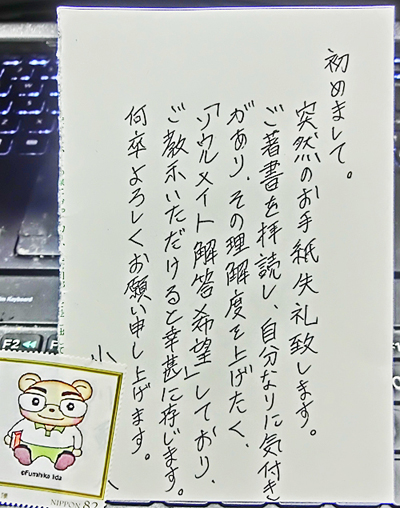 初めまして。
突然のお手紙失礼致します。
ご著書を拝読し、自分なりに気付き
があり、その理解度を上げたく、
「ソウルメイト解答希望」しており、
ご教示いただけると幸甚に存じます。
何卒よろしくお願い申し上げます。
小
©Fumihiko Ida
NIPPON 82
F2